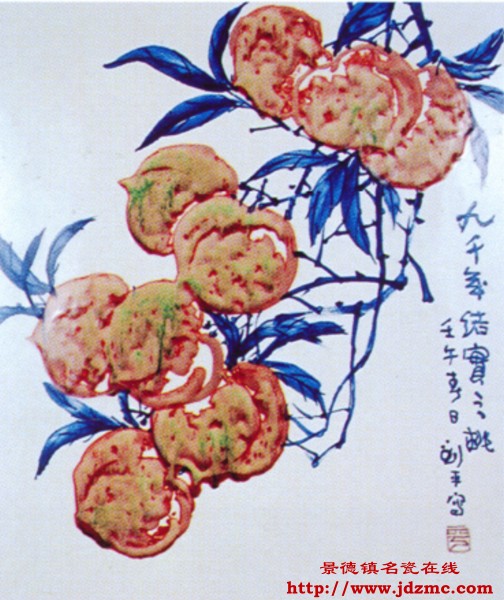 九千年结實之桃
壬午春日
劉平寫
景德镇名瓷在线
http://www.jdzmc.com